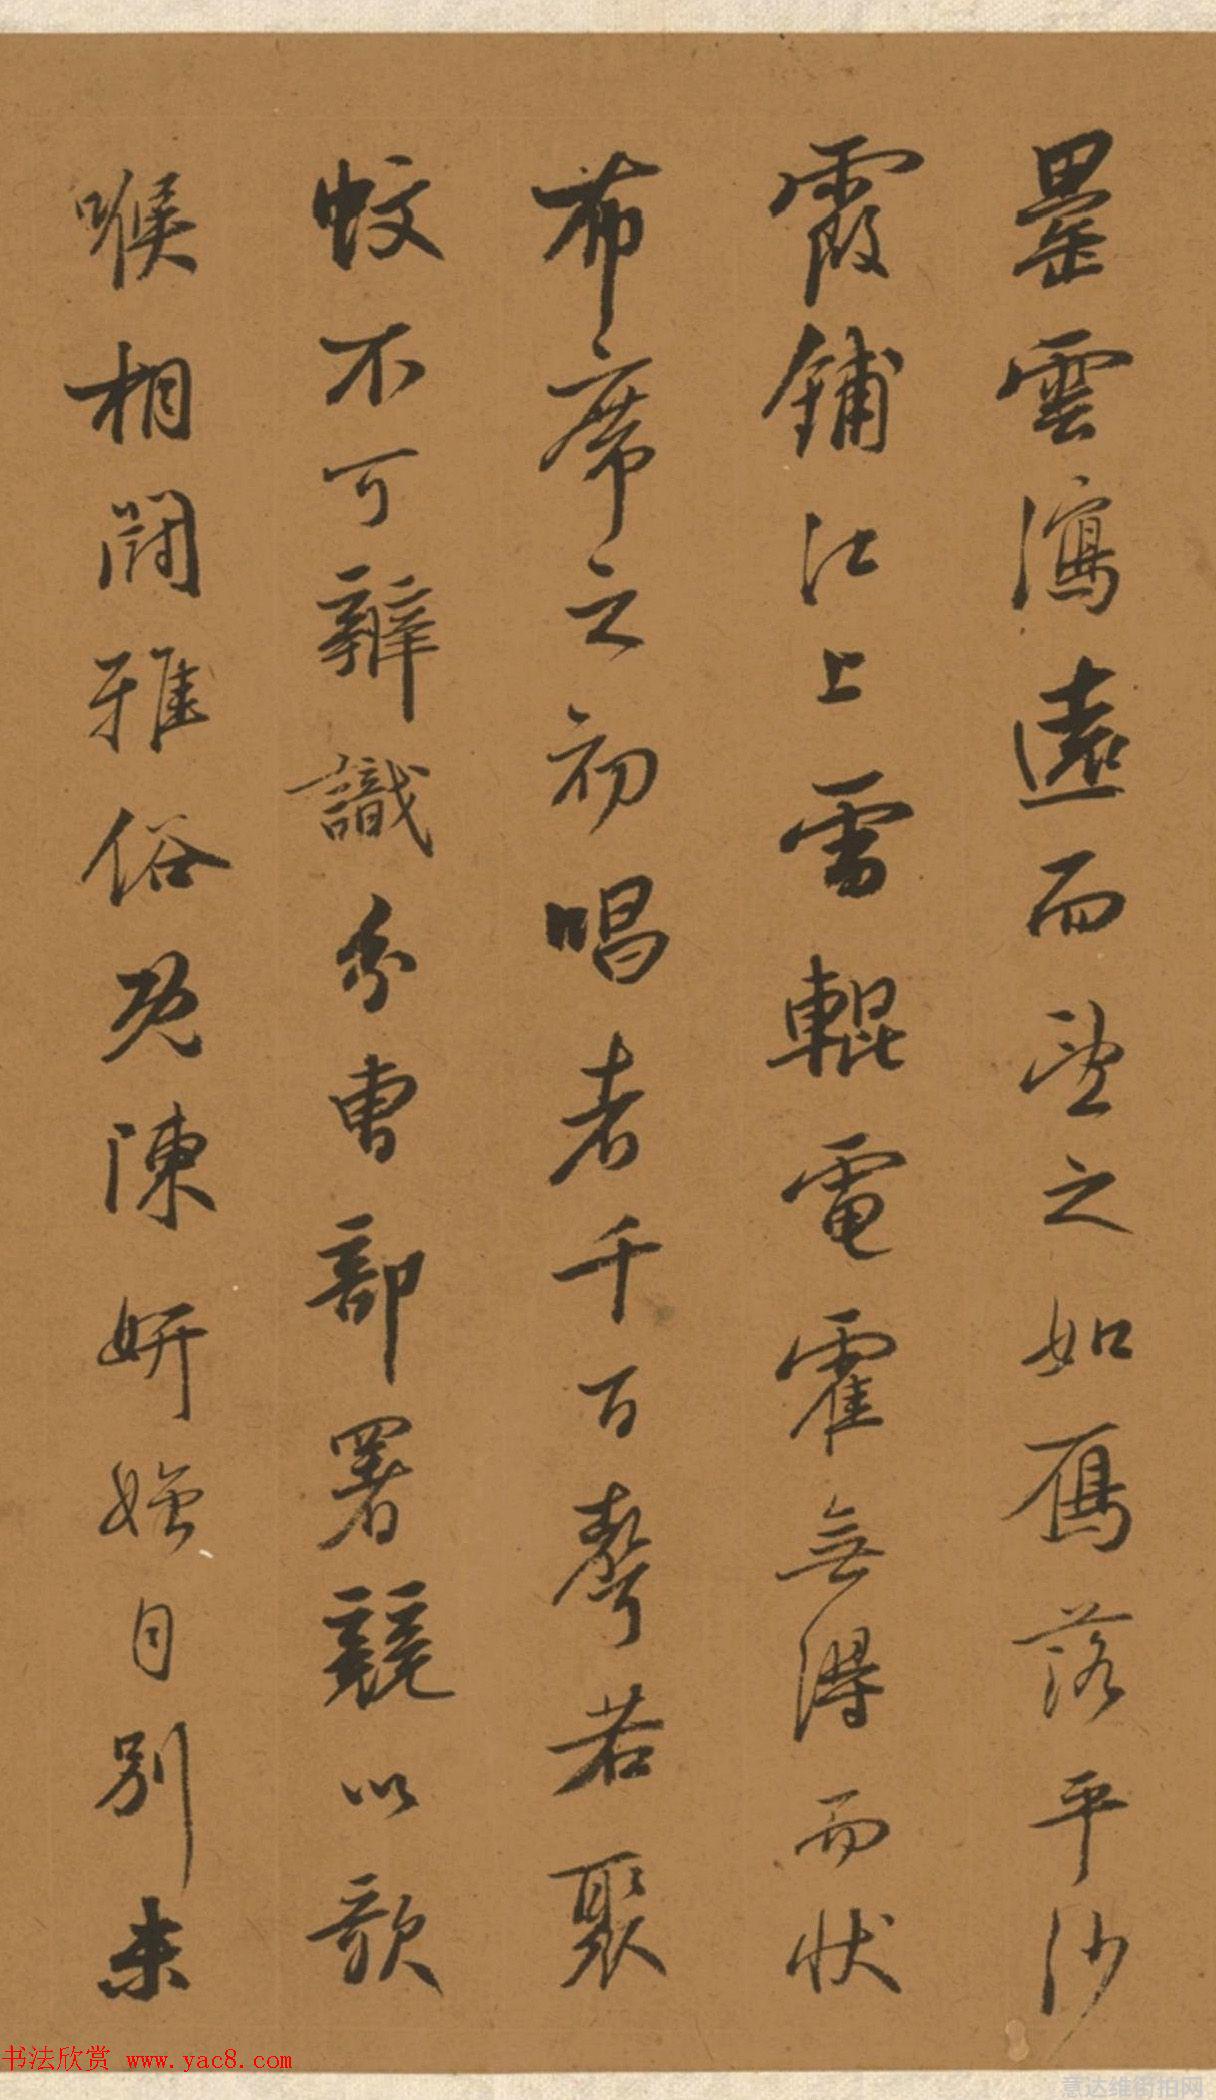 罍雲瀉遠而望之如鴈落平沙
霞鋪江上雷輥電霍無得而狀
布席之初唱者千百聲若聚
蚊不可辨識分曹部署競以歌
喉相鬭雅俗既陳妍媸自別未
书法欣赏 www.yac8.com
意达维街拍网